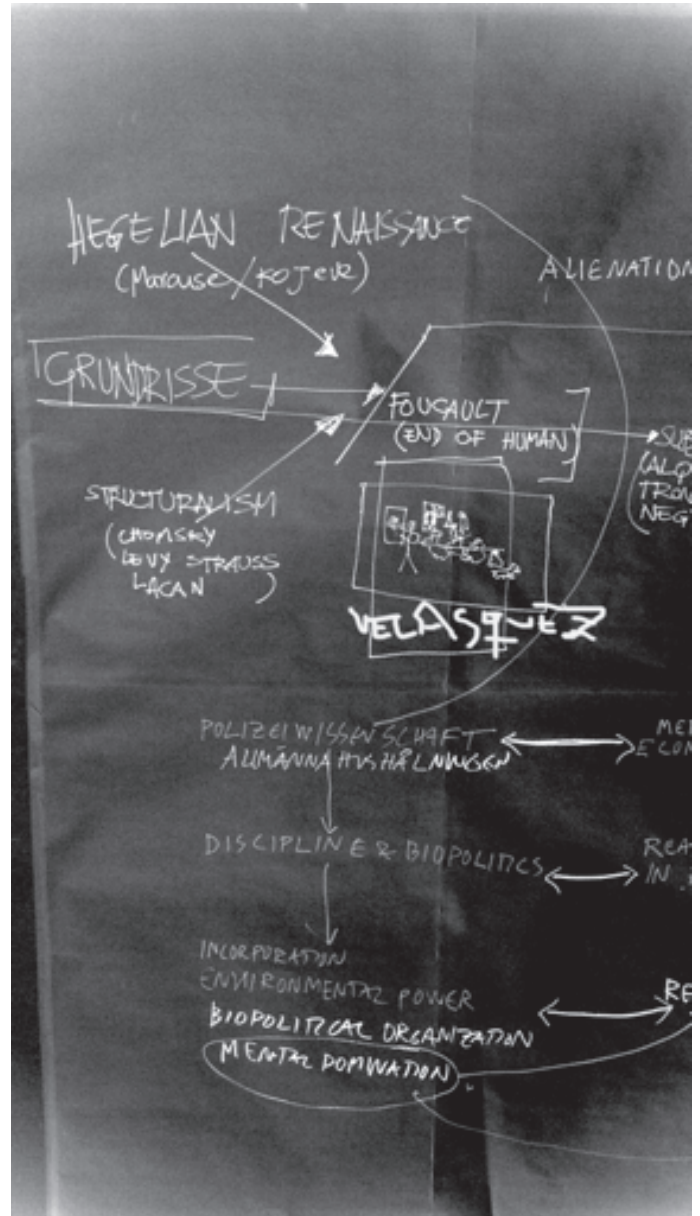 HEGELIAN RENAISSANCE
(Marcuse/Kojeve)
ALIENATION
GRUNDRISSE
FOUCAULT
(END OF HUMAN)
SUB
(ALQ
TRON
NEG
STRUCTURALISM
(CHOMSKY
LEVY STRAUSS
LACAN)
VELASQUEZ
POLIZEIWISSENSCHAFT
ALLMÄNNA HUSHÅLNINGEN
MER
ECON
DISCIPLINE & BIOPOLITICS
REA
IN
INCORPORATION
ENVIRONMENTAL POWER
BIOPOLITICAL ORGANIZATION
RE
MENTAL DOMINATION